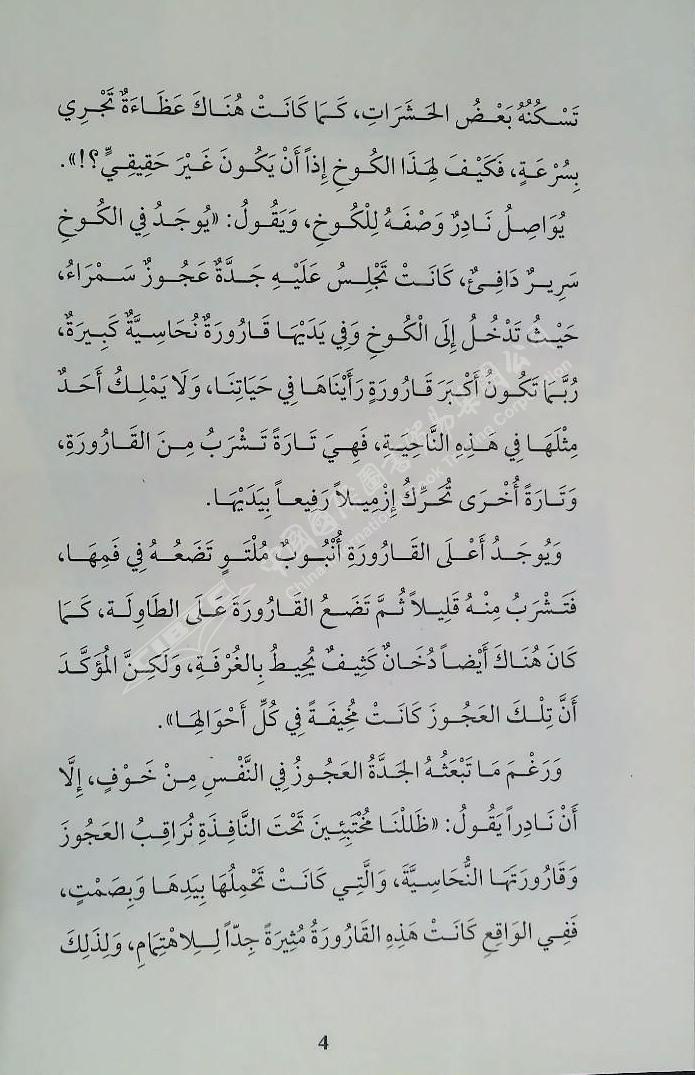 تَسْكُنُهُ بَعْضُ الحَشَرَاتِ، كَمَا كَانَتْ هُنَاكَ عَظَاءَةٌ تَجْرِي
بِسُرْعَةٍ، فَكَيْفَ لِهَذَا الكُوخِ إِذاً أَنْ يَكُونَ غَيْرَ حَقِيقِيٍّ؟!».
يُوَاصِلُ نَادِرٌ وَصْفَهُ لِلْكُوخِ، وَيَقُولُ: «يُوجَدُ فِي الكُوخِ
سَرِيرٌ دَافِئٌ، كَانَتْ تَجْلِسُ عَلَيْهِ جَدَّةٌ عَجُوزٌ سَمْرَاءُ،
حَيْثُ تَدْخُلُ إِلَى الْكُوخِ وَفِي يَدَيْهَا قَارُورَةٌ نُحَاسِيَّةٌ كَبِيرَةٌ،
رُبَّمَا تَكُونُ أَكْبَرَ قَارُورَةٍ رَأَيْنَاهَا فِي حَيَاتِنَا، وَلَا يَمْلِكُ أَحَدٌ
مِثْلَهَا فِي هَذِهِ النَّاحِيَةِ، فَهِيَ تَارَةً تَشْرَبُ مِنَ القَارُورَةِ،
وَتَارَةً أُخْرَى تُحَرِّكُ إِزْمِيلاً رَفِيعاً بِيَدَيْهَا.
وَيُوجَدُ أَعْلَى القَارُورَةِ أُنْبُوبٌ مُلْتَوٍ تَضَعُهُ فِي فَمِهَا،
فَتَشْرَبُ مِنْهُ قَلِيلاً ثُمَّ تَضَعُ القَارُورَةَ عَلَى الطَّاوِلَة، كَمَا
كَانَ هُنَاكَ أَيْضاً دُخَانٌ كَثِيفٌ يُحِيطُ بِالغُرْفَةِ، وَلَكِنَّ المُؤَكَّدَ
أَنَّ تِلْكَ العَجُوزَ كَانَتْ مُخِيفَةً فِي كُلِّ أَحْوَالِهَا».
وَرَغْمَ مَا تَبْعَثُهُ الجَدَّةُ العَجُوزُ فِي النَّفْسِ مِنْ خَوْفٍ، إِلَّا
أَنَّ نَادِراً يَقُولُ: «ظَلَلْنَا مُخْتَبِئِينَ تَحْتَ النَّافِذَةِ نُرَاقِبُ العَجُوزَ
وَقَارُورَتَهَا النُّحَاسِيَّةَ، وَالَّتِي كَانَتْ تَحْمِلُهَا بِيَدِهَا وَبِصَمْتٍ،
فَفِي الوَاقِعِ كَانَتْ هَذِهِ القَارُورَةُ مُثِيرَةً جِدّاً لِلِاهْتِمَامِ، وَلِذَلِكَ
4